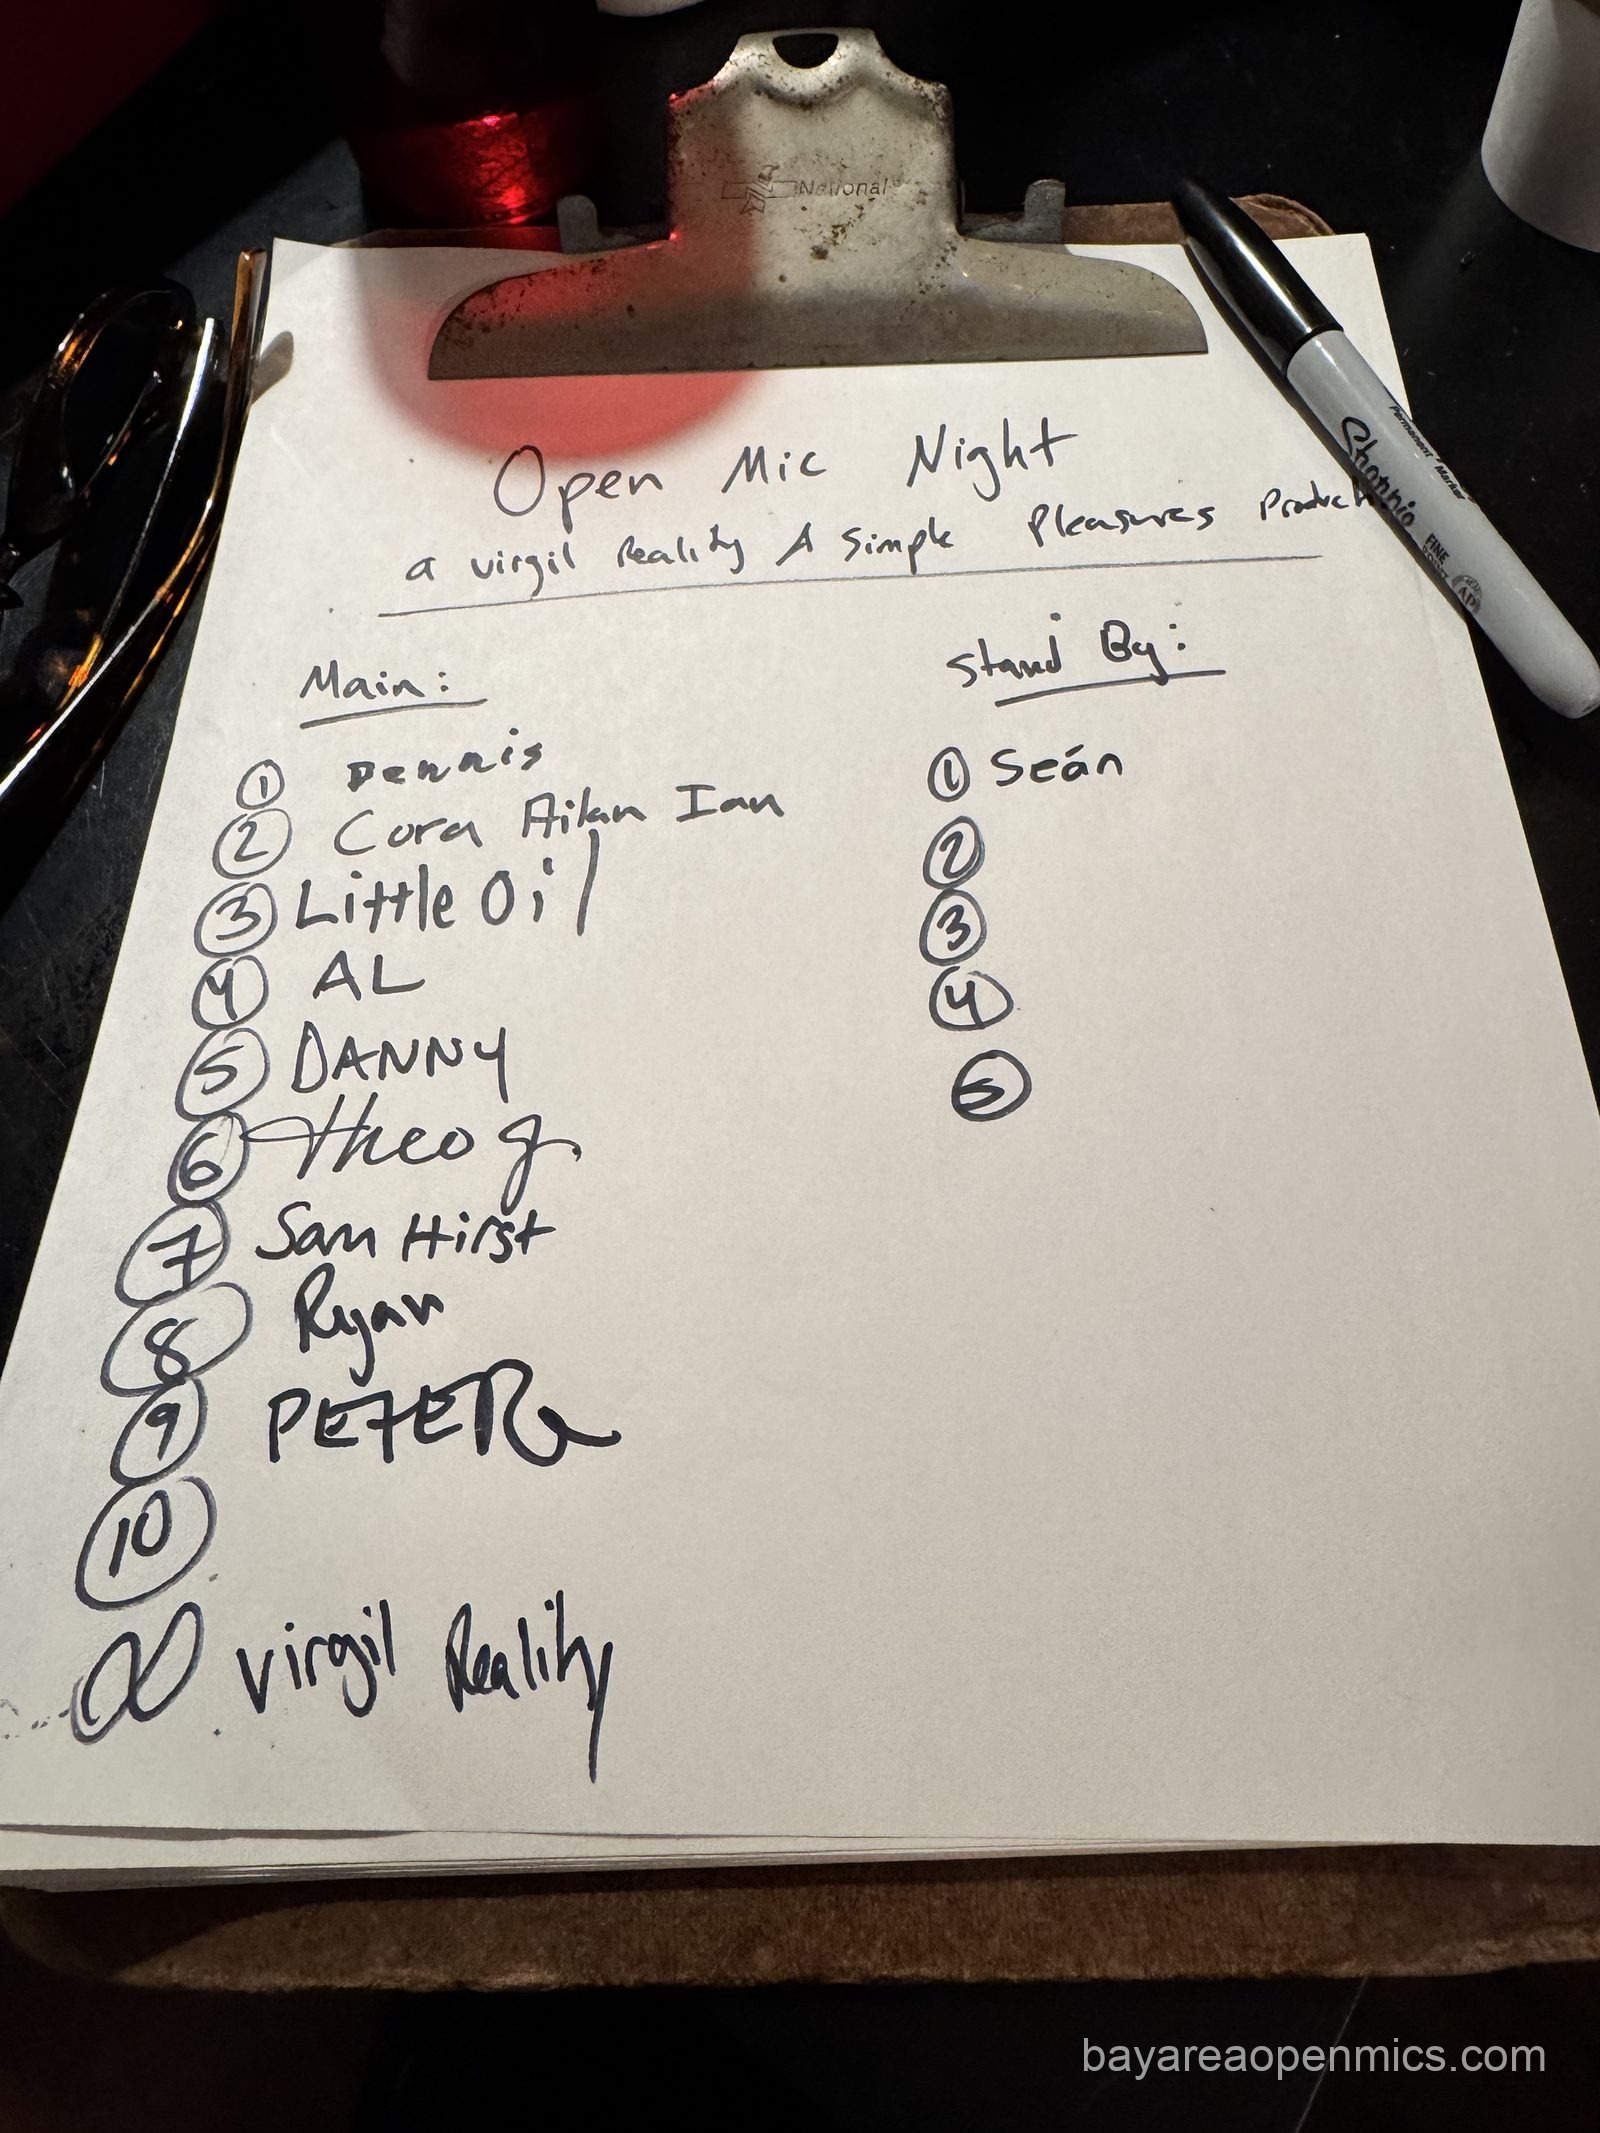 National
Open Mic Night
a virgil Reality A Simple Pleasures Product
Sharpie
Permanent Marker
FINE
AP
Main:
① Dennis
② Cora Ailan Ian
③ Little Oil
④ AL
⑤ DANNY
⑥ theo g.
⑦ Sam Hirst
⑧ Ryan
⑨ PETER
⑩
∞ virgil Reality
Stand By:
① Seán
②
③
④
⑤
bayareaopenmics.com